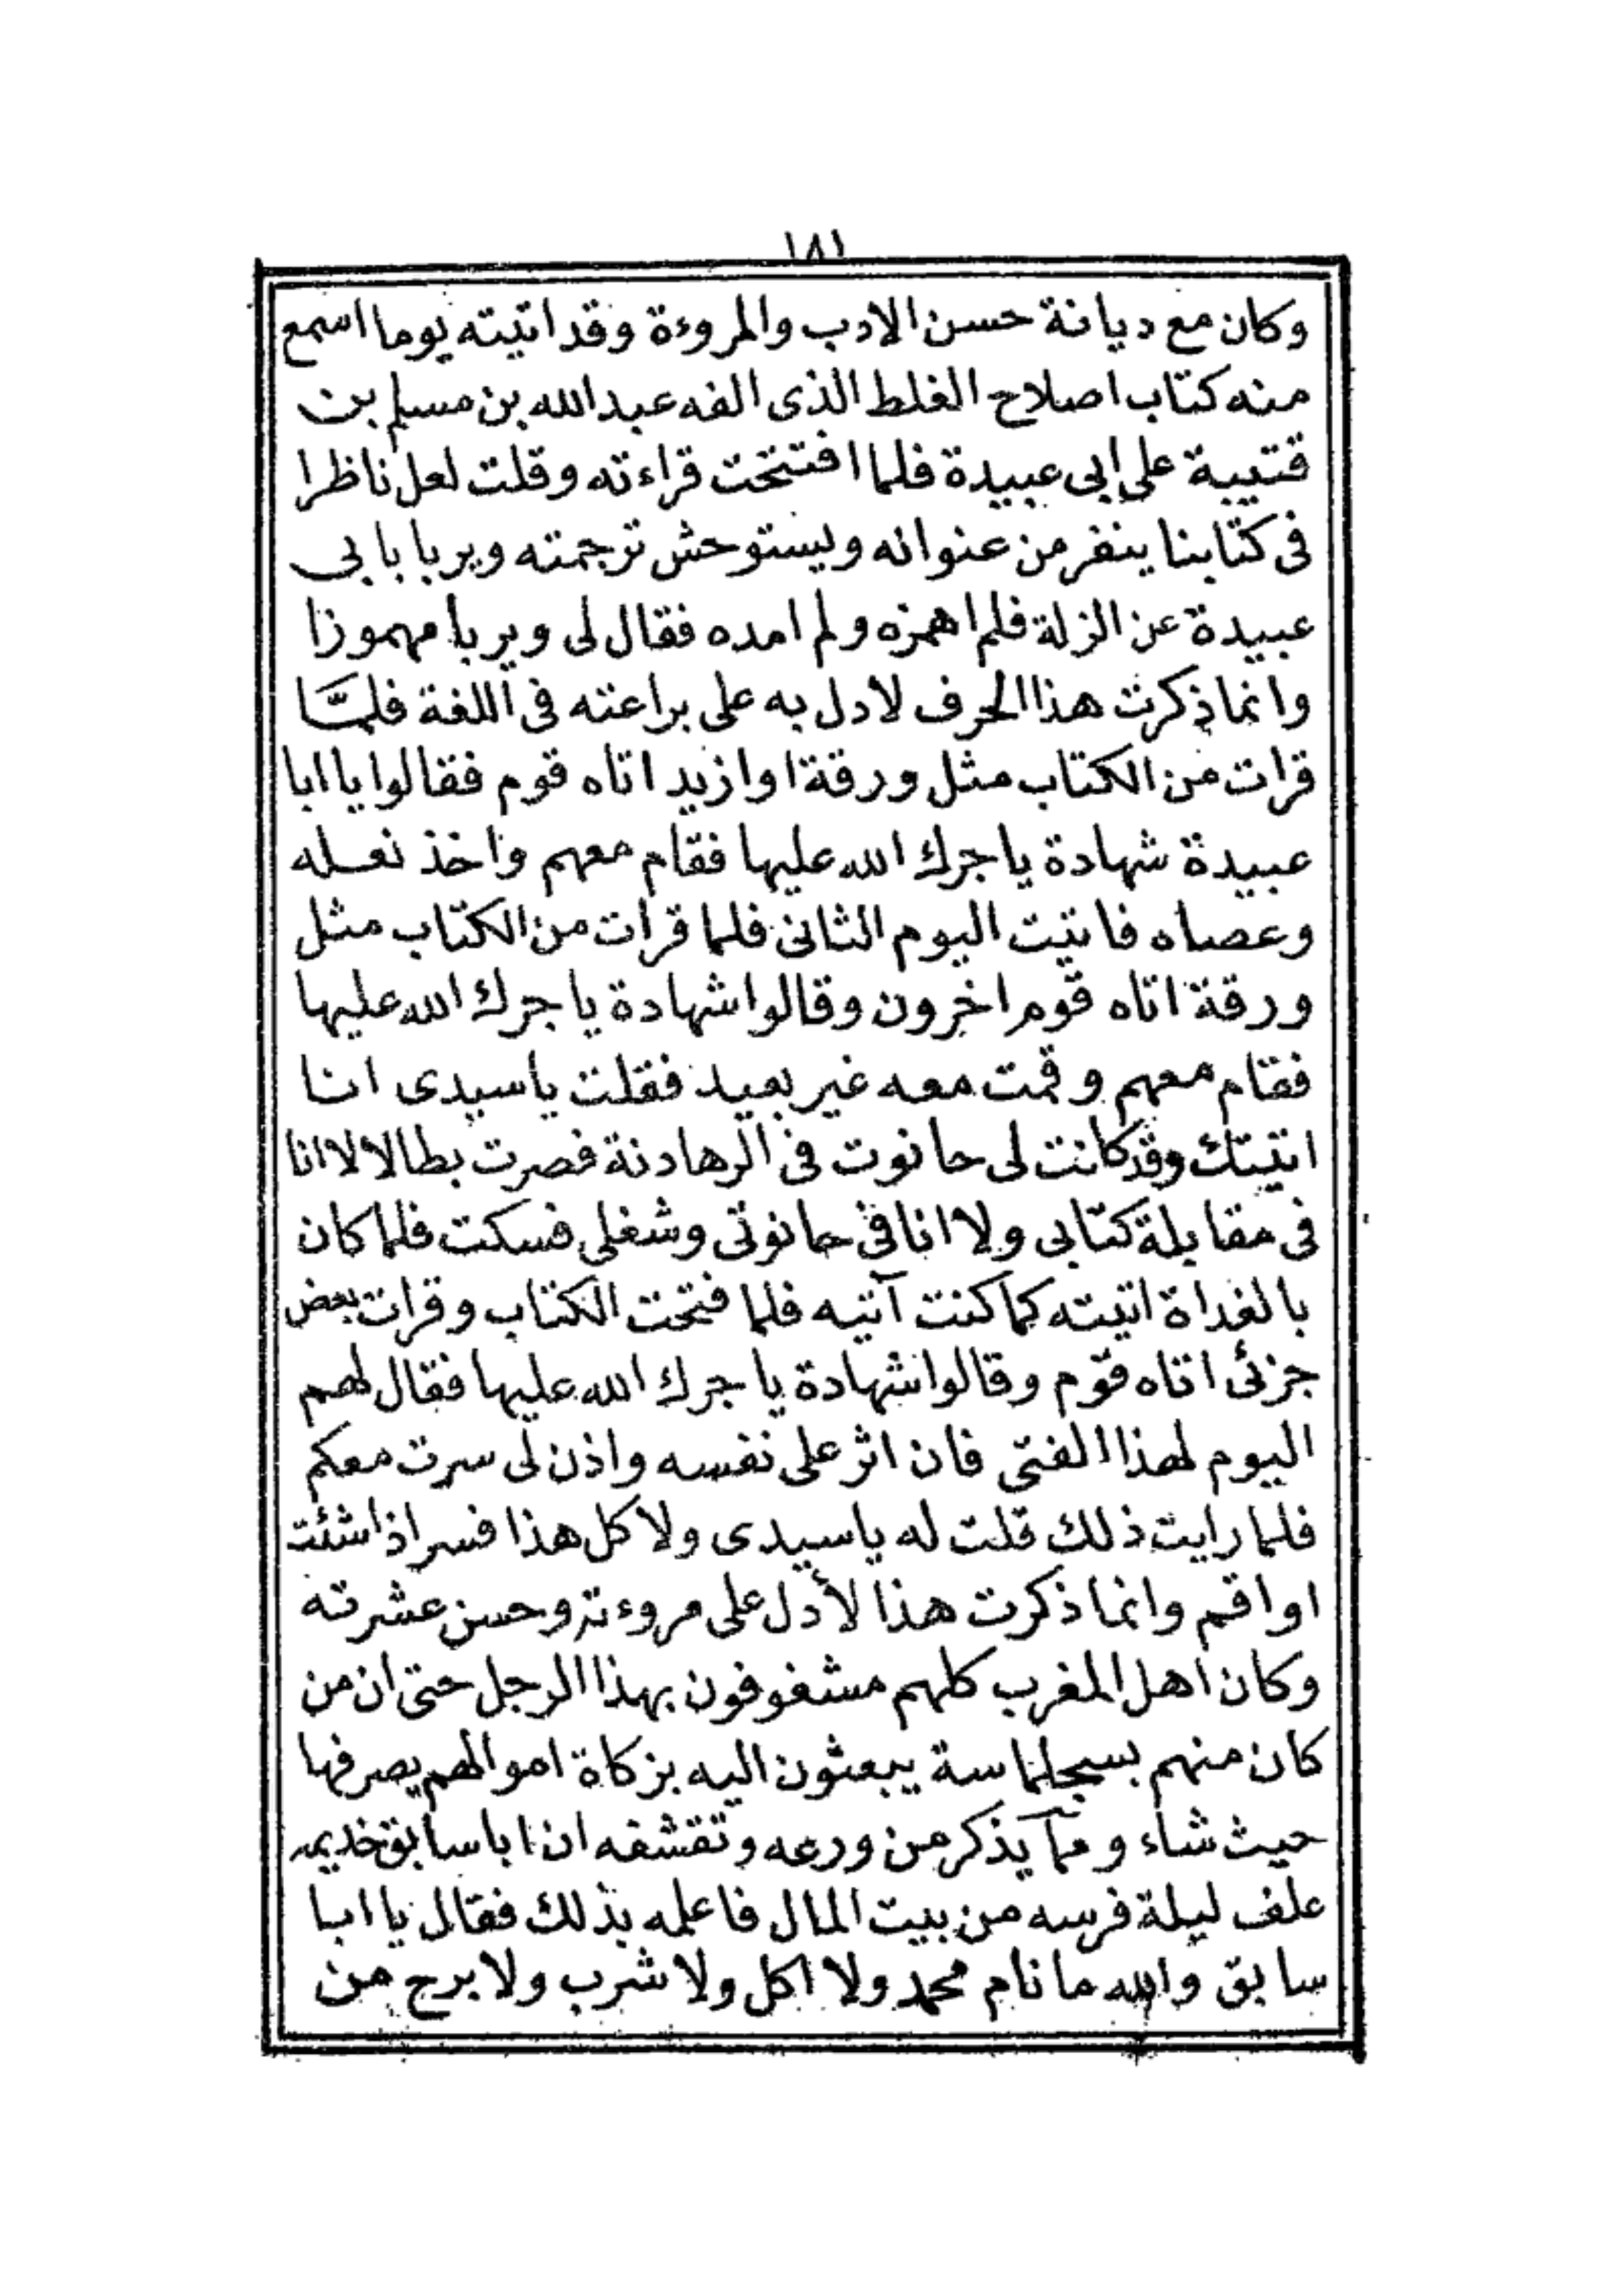 ١٨١
وكان مع ديانة حسن الادب والمروءة وقد اتيته يوما اسمع
منه كتاب اصلاح الغلط الذى الفه عبد الله بن مسلم بن
قتيبة على ابى عبيدة فلما افتتحت قراءته وقلت لعل ناظرا
فى كتابنا ينفر من عنوانه ويستوحش ترجمته ويربا بابى
عبيدة عن الزلة فلم اهمزه ولم امده فقال لى ويربأ مهموزا
وانما ذكرت هذا الحرف لادل به على براعته فى اللغة فلمَّا
قرات من الكتاب مثل ورقة او ازيد اتاه قوم فقالوا يا ابا
عبيدة شهادة ياجرك الله عليها فقام معهم واخذ نعله
وعصاه فاتيت اليوم الثانى فلما قرات من الكتاب مثل
ورقة اتاه قوم اخرون وقالوا شهادة ياجرك الله عليها
فقام معهم وقمت معه غير بعيد فقلت ياسيدى انا
اتيتك وقد كانت لى حانوت فى الرهادنة فصرت بطالا لا انا
فى مقابلة كتابى ولا انا فى حانوتى وشغلى فسكت فلما كان
بالغداة اتيته كما كنت آتيه فلما فتحت الكتاب وقرات بعض
جزئى اتاه قوم وقالوا شهادة ياجرك الله عليها فقال لهم
اليوم لهذا الفتى فان اثر على نفسه واذن لى سرت معكم
فلما رايت ذلك قلت له ياسيدى ولا كل هذا فسر اذا شئت
او اقم وانما ذكرت هذا لأدل على مروءته وحسن عشرته
وكان اهل المغرب كلهم مشغوفون بهذا الرجل حتى ان من
كان منهم بسجلماسة يبعثون اليه بزكاة اموالهم يصرفها
حيث شاء ومما يذكر من ورعه وتقشفه ان ابا سابق خديمه
علف ليلة فرسه من بيت المال فاعلمه بذلك فقال يا ابا
سابق والله ما نام محمد ولا اكل ولا شرب ولا برح من